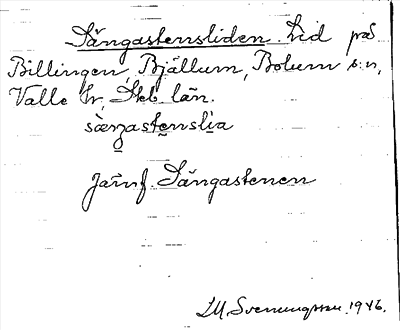 Sängastensliden. Lid på
Billingen, Bjällum, Bolum s:n,
Valle hr, Skb. län.
sæŋastenslia
Jämf. Sängastenen
LM. Svenungsson. 1946.